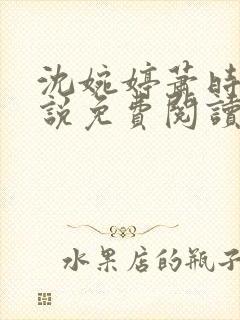 沈婉婷萧时
說免費閱讀
水果店的瓶子